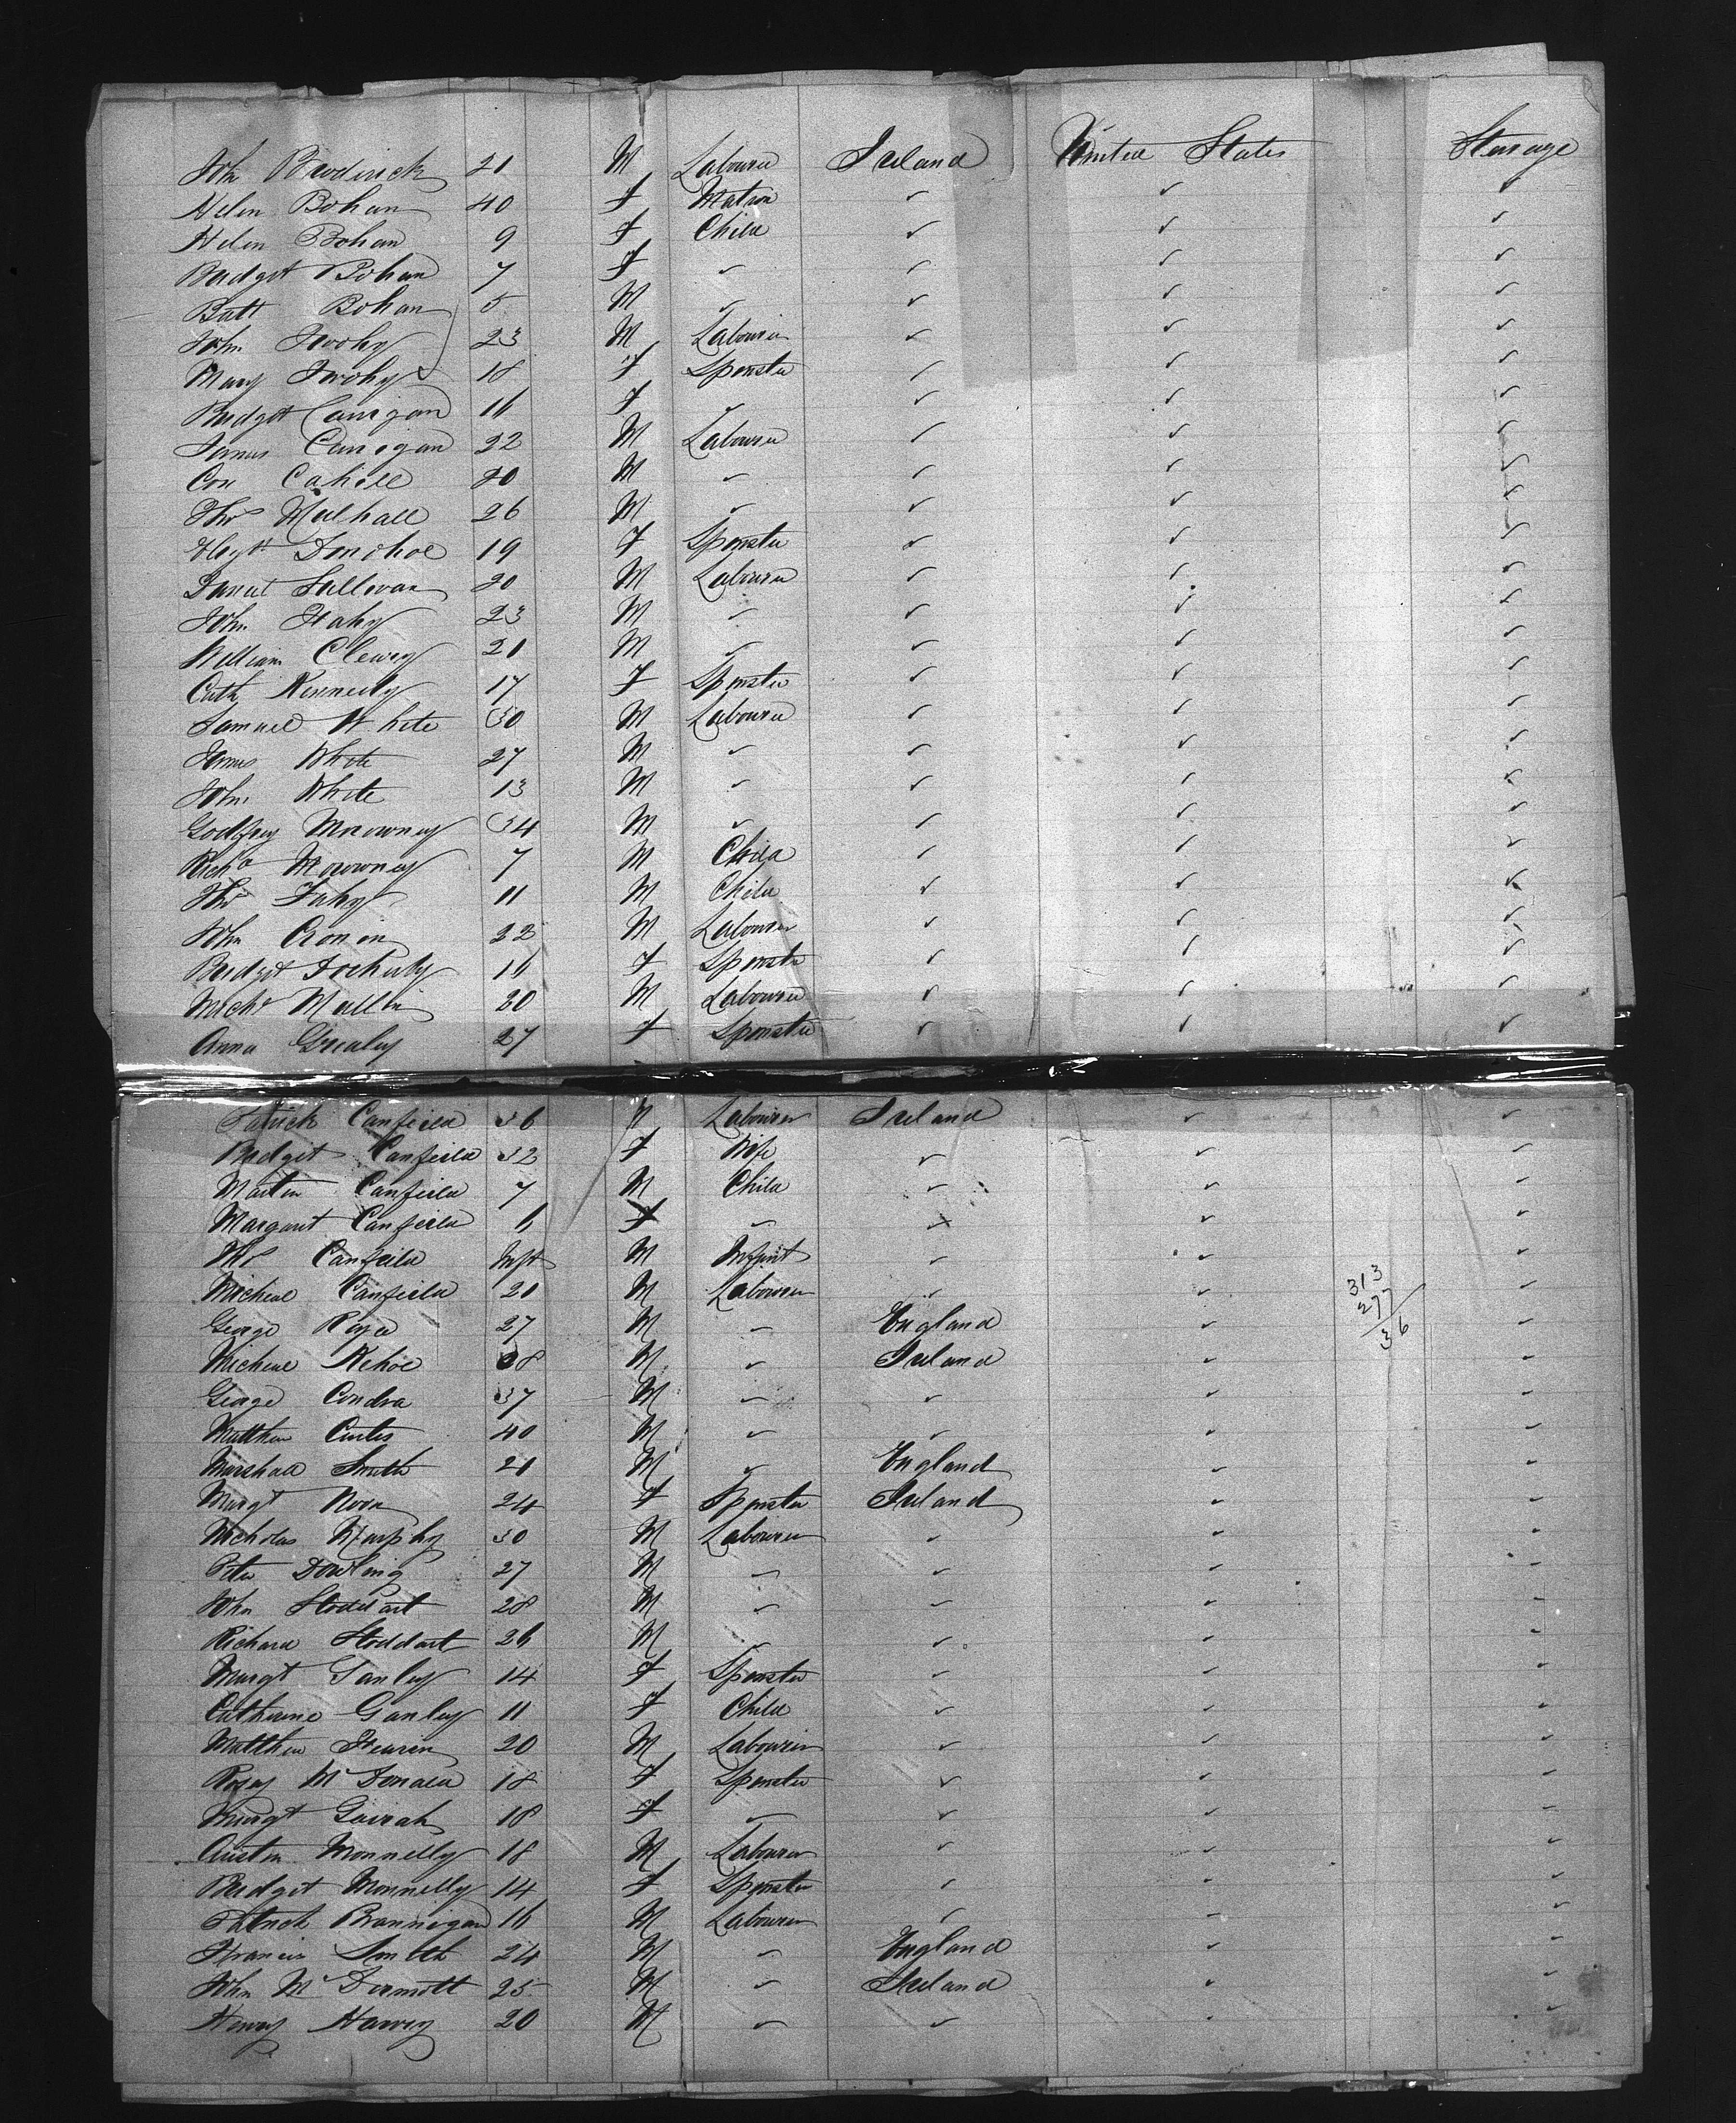 John Broderick 21 M Labourer Ireland United States Steerage
Helen Bohan 40 F Matron ✓ ✓ ✓
Helen Bohan 9 F Child ✓ ✓ ✓
Bridget Bohan 7 F ✓ ✓ ✓ ✓
Batt Bohan 5 M ✓ ✓ ✓ ✓
John Twohy 23 M Labourer ✓ ✓ ✓
Mary Twohy 18 F Spinster ✓ ✓ ✓
Bridget Carrigan 16 F ✓ ✓ ✓ ✓
James Carrigan 22 M Labourer ✓ ✓ ✓
Con Cahill 20 M ✓ ✓ ✓ ✓
Thos Mulhall 26 M ✓ ✓ ✓ ✓
Donohoe 19 F Spinster ✓ ✓ ✓
Daniel Sullivan 20 M Labourer ✓ ✓ ✓
John Fahy 23 M ✓ ✓ ✓ ✓
William Cleary 21 M ✓ ✓ ✓ ✓
Cath Kennedy 17 F Spinster ✓ ✓ ✓
Samuel White 30 M Labourer ✓ ✓ ✓
James White 27 M ✓ ✓ ✓ ✓
John White 13 M ✓ ✓ ✓ ✓
Godfrey 34 M ✓ ✓ ✓ ✓
Richd 7 M Child ✓ ✓ ✓
Thos Fahy 11 M Child ✓ ✓ ✓
John Cronin 22 M Labourer ✓ ✓ ✓
Bridget Docherty 16 F Spinster ✓ ✓ ✓
Michl Mullin 20 M Labourer ✓ ✓ ✓
Anna Grealey 27 F Spinster ✓ ✓ ✓
Patrick Canfield 36 M Labourer Ireland ✓ ✓
Bridget Canfield 32 F Wife ✓ ✓ ✓
Martin Canfield 7 M Child ✓ ✓ ✓
Margaret Canfield 6 F ✓ ✓ ✓ ✓
Thos Canfield Inft M Infant ✓ ✓ ✓
Micheal Canfield 20 M Labourer ✓ ✓ 313 ✓
George 27 M ✓ England ✓ 277 ✓
Micheal Kehoe 38 M ✓ Ireland ✓ 36 ✓
George Condra 37 M ✓ ✓ ✓ ✓
Matthew Curtis 40 M ✓ ✓ ✓ ✓
Marshall Smith 21 M ✓ England ✓ ✓
Margt Noon 24 F Spinster Ireland ✓ ✓
Nicholas Murphy 30 M Labourer ✓ ✓ ✓
Peter Dowling 27 M ✓ ✓ ✓ ✓
John Stoddart 28 M ✓ ✓ ✓ ✓
Richard Stoddart 26 M ✓ ✓ ✓ ✓
Margt Ganley 14 F Spinster ✓ ✓ ✓
Catherine Ganley 11 F Child ✓ ✓ ✓
Matthew 20 M Labourer ✓ ✓ ✓
Rosey McDonald 18 F Spinster ✓ ✓ ✓
Margt 18 F ✓ ✓ ✓ ✓
Austin Monnelly 18 M Labourer ✓ ✓ ✓
Bridget Monnelly 14 F Spinster ✓ ✓ ✓
Patrick Brannigan 16 M Labourer ✓ ✓ ✓
Francis Smith 24 M ✓ England ✓ ✓
John McDermott 25 M ✓ Ireland ✓ ✓
Henry Harvey 20 M ✓ ✓ ✓ ✓